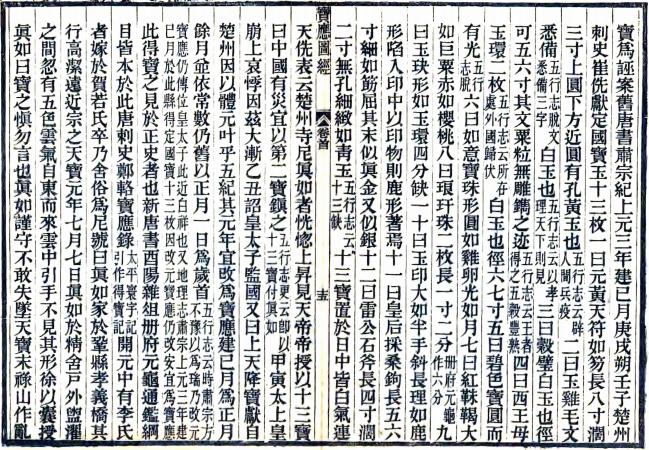 寶爲誣案舊唐書肅宗紀上元三年建巳月庚戌朔壬子楚州
刺史崔侁獻定國寶玉十三枚一曰元黃天符如笏長八寸濶
三寸上圓下方近圓有孔黃玉也五行志云辟人間兵疫二曰玉雞毛文
悉備五行志脫文悉備三字白玉也五行志云以孝理天下則見三曰穀璧白玉也徑
可五六寸其文粟粒無雕鐫之迹五行志云王者得之五穀豐熟四曰西王母
玉環二枚五行志云所在處外國歸伏白玉也徑六七寸五曰碧色寶圓而
有光五行志脫六曰如意寶珠形圓如雞卵光如月七曰紅靺鞨大
如巨粟赤如櫻桃八曰瑯玕珠二枚長一寸二分册府元龜作六分九
曰玉玦形如玉環四分缺一十曰玉印大如半手斜長理如鹿
形陷入印中以印物則鹿形著焉十一曰皇后採桑鉤長五六
寸細如筯屈其末似眞金又似銀十二曰雷公石斧長四寸濶
二寸無孔細緻如靑玉五行志云十三缺十三寶置於日中皆白氣連
寶應圖經 卷首 十五
天侁表云楚州寺尼眞如者恍惚上昇見天帝帝授以十三寶
曰中國有災宜以第二寶鎭之五行志更云卽以十三寶付眞如甲寅太上皇
崩上哀悸因兹大漸乙丑詔皇太子監國又曰上天降寶獻自
楚州因以體元叶乎五紀其元年宜改爲寶應建巳月爲正月
餘月竝依常數仍舊以正月一日爲歲首五行志云時肅宗方不豫以爲瑞乃改元
寶應仍傳位皇太子此近白祥也又地理志肅宗上元三年建
巳月於此縣得定國寶十三枚因改元寶應仍改安宜爲寶應
此得寶之見於正史者也新唐書酉陽雜俎册府元龜通鑑綱
目皆本於此唐刺史鄭輅寶應錄太平寰宇記引作得寶記開元中有李氏
者嫁於賀若氏卒乃舍俗爲尼號曰眞如家於鞏縣孝義橋其
行高潔遠近宗之天寶元年七月七日眞如於精舍戶外盥濯
之間忽有五色雲氣自東而來雲中引手不見其形徐以囊授
眞如曰寶之愼勿言也眞如謹守不敢失墜天寶末祿山作亂